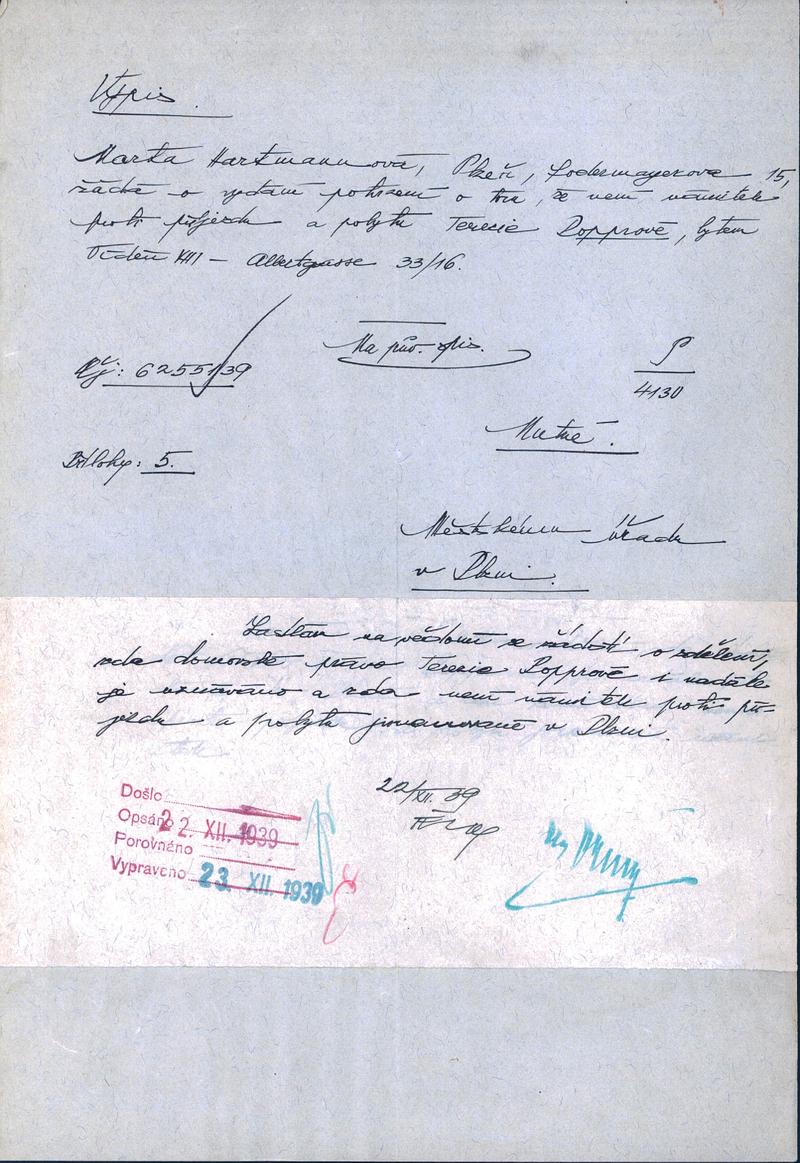 Výpis.
Marta Hartmannová, Plzeň, Lochmayerova 15,
žádá o vydání potvrzení o tom, že není námitek
proti příjezdu a pobytu Terezie Popprové, bytem
Vídeň XIII – Albertgasse 33/16.
Na pův. spis.
Čj: 62551/39
P
4130
Nutné.
Přílohy: 5.
Městskému úřadu
v Plzni.
Zasílám na vědomí se žádostí o sdělení,
zda domovské právo Terezie Popprové i nadále
je uznáváno a zda není námitek proti pří-
jezdu a pobytu jmenované v Plzni.
22/XII. 39
Došlo
Opsáno 22. XII. 1939
Porovnáno
Vypraveno 23. XII. 1939